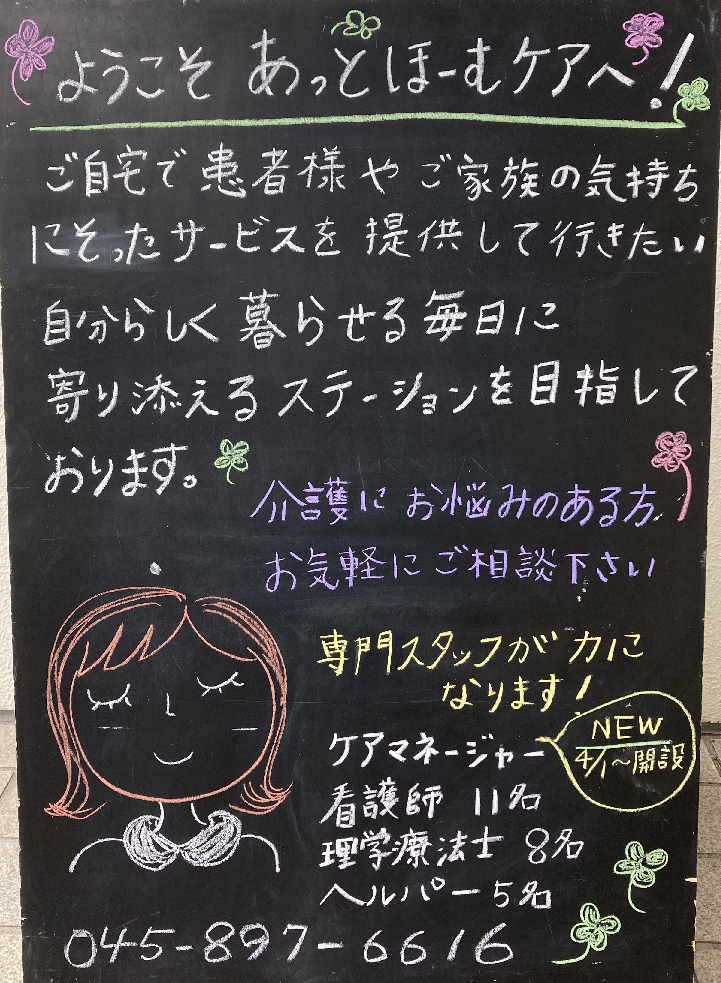 ようこそ あっとほーむケアへ!
ご自宅で患者様やご家族の気持ち
にそったサービスを提供して行きたい
自分らしく暮らせる毎日に
寄り添えるステーションを目指して
おります。
介護にお悩みのある方
お気軽にご相談下さい
専門スタッフが力に
なります!
NEW
4/1〜開設
ケアマネージャー
看護師 11名
理学療法士 8名
ヘルパー 5名
045-897-6616